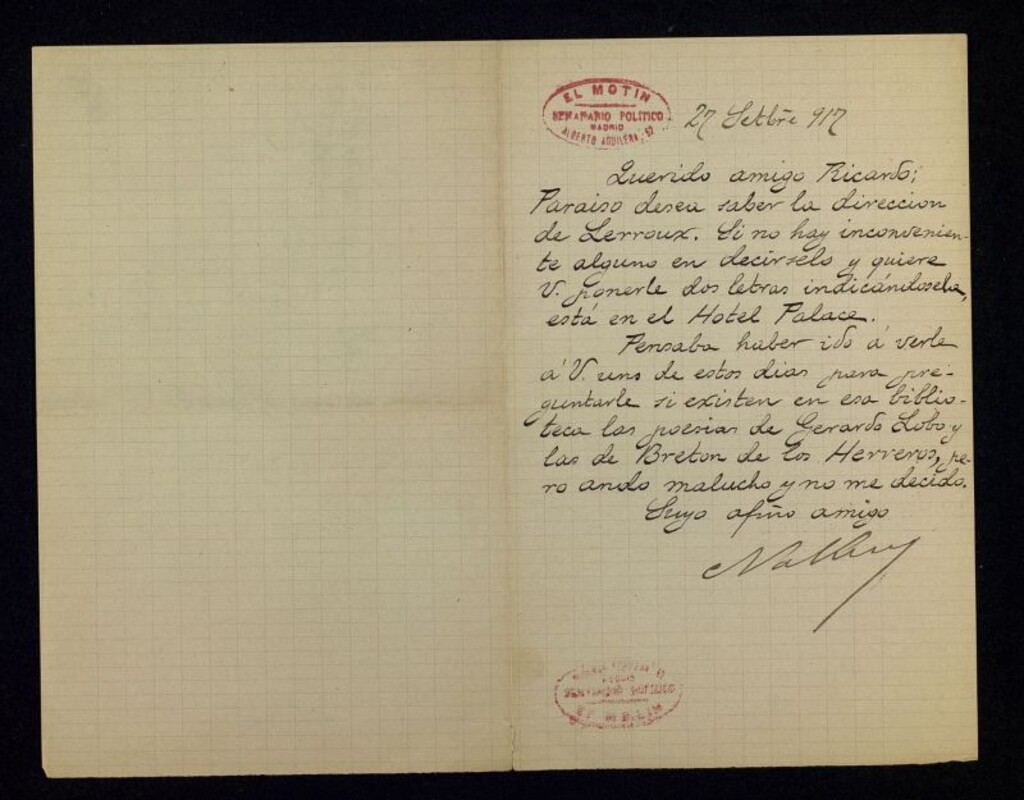 EL MOTIN
SEMANARIO POLÍTICO
MADRID
ALBERTO AGUILERA, 52
27 Setbñe 917
Querido amigo Ricardo;
Paraiso desea saber la direccion
de Lerroux. Si no hay inconvenien-
te alguno en decirselo y quiere
V. ponerle dos letras indicándosela,
está en el Hotel Palace.
Pensaba haber ido á verle
á V. uno de estos dias para pre-
guntarle si existen en esa biblio-
teca las poesias de Gerardo Lobo y
las de Breton de los Herreros, pe-
ro ando malucho y no me decido.
Suyo afmo amigo